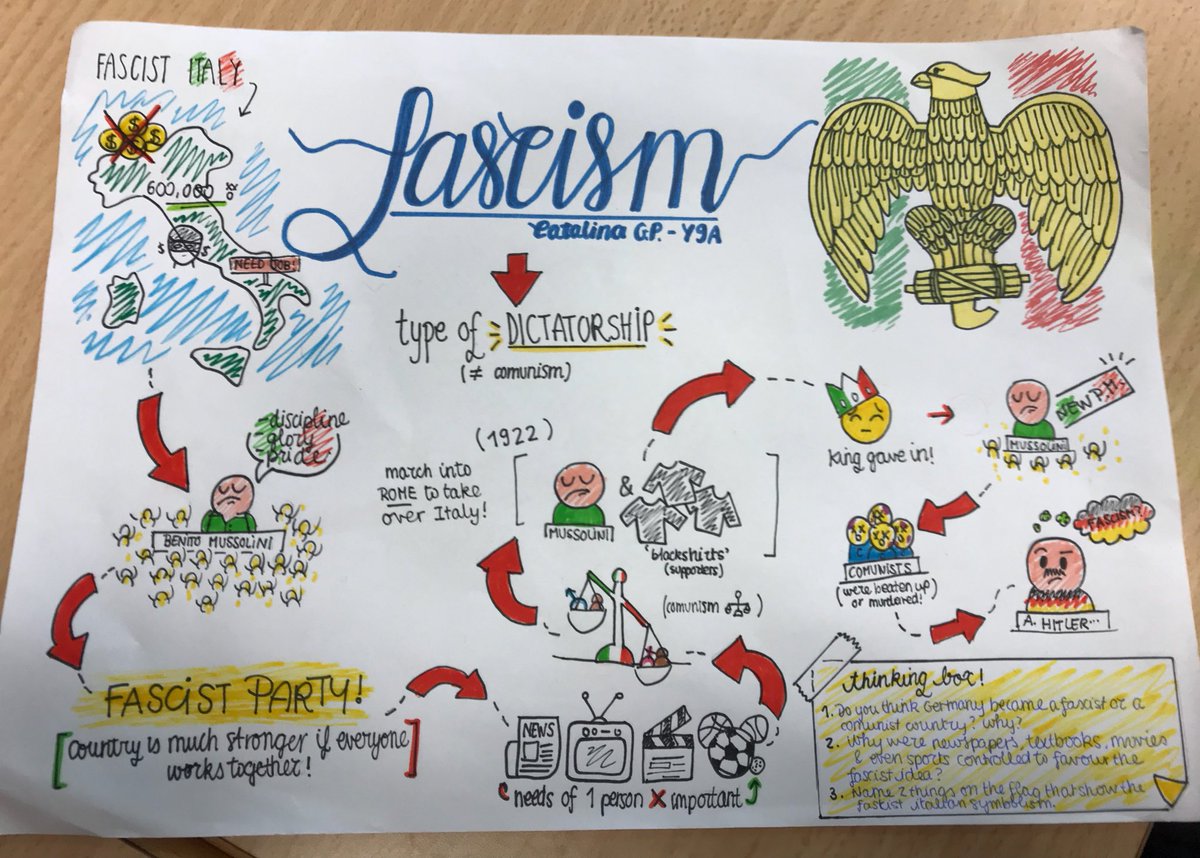 FASCIST ITALY
600,000
NEED JOB!
fascism
Catalina G.P. - Y9A
type of DICTATORSHIP
(≠ comunism)
discipline
glory
pride
BENITO MUSSOLINI
FASCIST PARTY!
[country is much stronger if everyone
works together!]
NEWS
needs of 1 person X important
(comunism )
(1922)
march into
ROME to take
over Italy!
MUSSOLINI
&
'blackshirts'
(supporters)
King gave in!
NEW P.M.
MUSSOLINI
COMUNISTS
(were beaten up
or murdered!)
FASCISM?
A. HITLER...
thinking box!
1. Do you think Germany became a fascist or a
comunist country? Why?
2. Why were newspapers, textbooks, movies
& even sports controlled to favour the
fascist idea?
3. Name 2 things on the flag that show the
fascist italian symbolism.